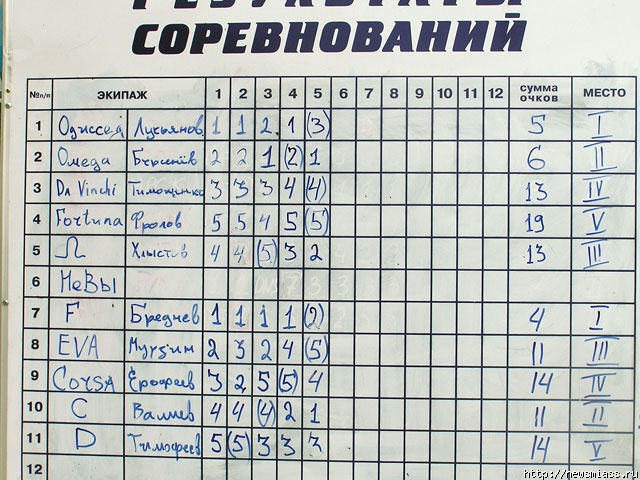 РЕЗУЛЬТАТЫ
СОРЕВНОВАНИЙ
№п/п ЭКИПАЖ 1 2 3 4 5 6 7 8 9 10 11 12 сумма очков МЕСТО
1 Одиссей Лукьянов 1 1 2 1 (3) 5 I
2 Омега 2 2 1 (2) 1 6 II
3 Da Vinchi Тимощенко 3 3 3 4 (4) 13 IV
4 Fortuna Фролов 5 5 4 5 (5) 19 V
5 Ω Хлыстов 4 4 (5) 3 2 13 III
6 НеВы
7 F Бреднев 1 1 1 1 (2) 4 I
8 EVA Мурзин 2 3 2 4 (5) 11 III
9 CORSA Ерофеев 3 2 5 (5) 4 14 IV
10 C Валиев 4 4 (4) 2 1 11 II
11 D Тимофеев 5 (5) 3 3 3 14 V
12
http://newsmiass.ru